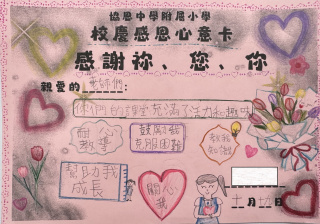 協恩中學附屬小學
校慶感恩心意卡
感謝祢、您、你
親愛的老師們：
你們的課堂充滿了活力和趣味
耐心教導
鼓勵我
克服困難
教我知識
幫助我
成長
關心
我
月 日